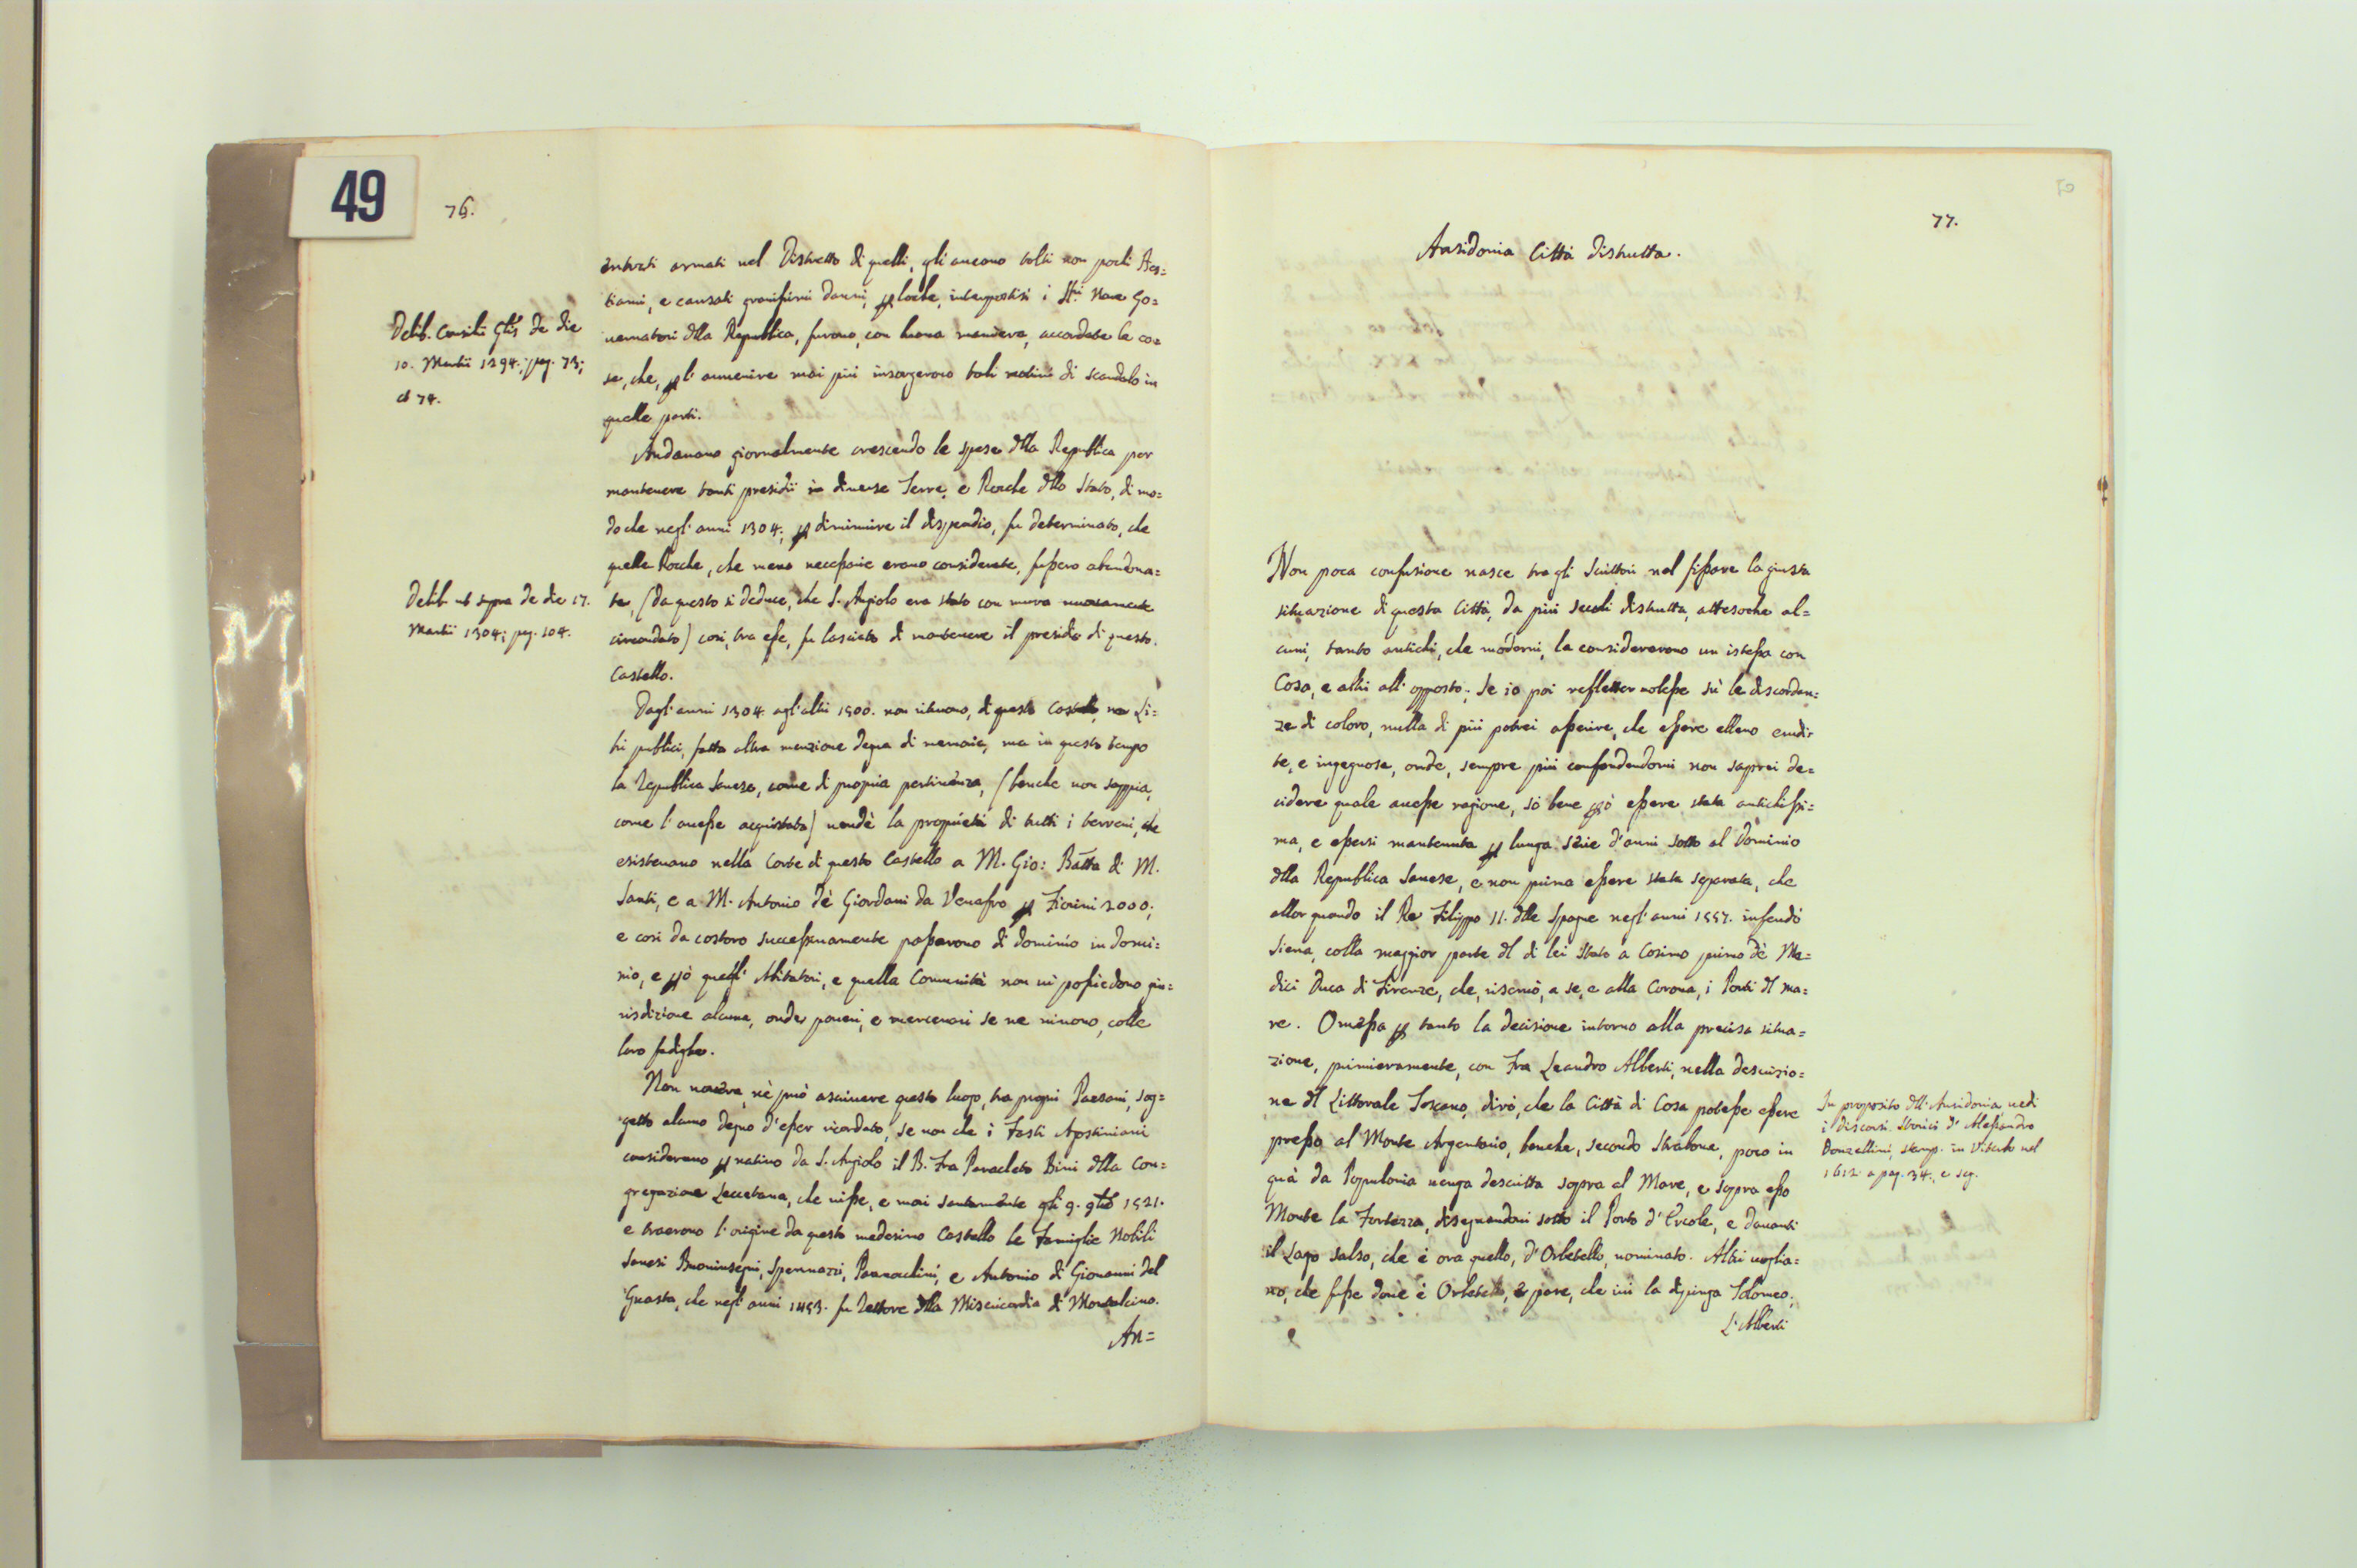 49
76.
entrati armati nel Distretto di quelli, gli aveano tolti non pochi Bes=
tiami, e causati gravissimi danni, p loche, interpostisi i SS.ri Nove Go=
vernatori dlla Republica, furono, con buona maniera, accordate le co=
se, che, p l'avvenire mai più insorgerono tali motivi di scandalo in
quelle parti.
Delib. Consilii Glis de die
10. Martii 1294.; pag. 73;
et 74.
Andavano giornalmente crescendo le spese dlla Republica per
mantenere tanti presidii in diverse Terre, e Rocche dllo Stato, di mo=
do che negl'anni 1304.; p diminuire il dispendio, fu determinato, che
quelle Rocche, che meno necessarie erano considerate, fussero abandona=
te, (da questo si deduce, che S. Angiolo era stato con mura nuovamente
circondato) così, tra esse, fu lasciato di mantenere il presidio di questo
Castello.
Delib. ut supra de die 17.
Martii 1304; pag. 104.
Dagl'anni 1304. agl'altri 1500. non ritruovo, di questo Castello, ne Li=
bri publici, fatta altra menzione degna di memoria, ma in questo tempo
la Republica Sanese, come di propria pertinenza, (benche non sappia,
come l'avesse acquistata) vendè la proprietà di tutti i terreni, che
esistevano nella Corte di questo Castello a M. Gio: Batta di M.
Santi, e a M. Antonio dè Giordani da Venafro p Fiorini 2000;
e così da costoro successivamente passarono di dominio in domi=
nio, e pò quegl'Abitatori, e quella Comunità non vi possiedono giu=
risdizione alcuna, onde poveri, e mercenari se ne vivono, colle
loro fadighe.
Non novera, nè può ascrivere questo luogo, tra propri Paesani, sog=
getto alcuno degno d'esser ricordato, se non che i Fasti Agostiniani
considerano p nativo da S. Angiolo il B. Fra Paracleto Bini dlla Con=
gregazione Leccetana, che visse, e morì santamente gli 9. 9bre 1521.
e traerono l'origine da questo medesimo Castello le Famiglie Nobili
Sanesi Buoninsegni, Spennazzi, Pannochini, e Antonio di Giovanni del
Guasta, che negl'anni 1453. fu Rettore dlla Misericordia di Montalcino.
An=
77.
Ansidonia Città distrutta.
Non poca confusione nasce tra gli Scrittori nel fissare la giusta
situazione di questa Città, da più secoli distrutta, attesoche al=
cuni, tanto antichi, che moderni, la considerarono un istessa con
Cosa, e altri all'opposto; Se io poi refletter volesse sù le discordan=
ze di coloro, nulla di più potrei asserire, che essere elleno erudi=
te, e ingegnose, onde, sempre più confondendomi non saprei de=
cidere quale avesse ragione, sò bene pò essere stata antichissi=
ma, e essersi mantenuta p lunga serie d'anni sotto al Dominio
dlla Republica Sanese, e non prima essere stata separata, che
allor quando il Re Filippo II. dlle Spagne negl'anni 1557. infeudò
Siena, colla maggior parte dl di lei Stato a Cosimo primo dè Me=
dici Duca di Firenze, che, riservò, a se, e alla Corona, i Porti dl ma=
re. Omessa p tanto la decisione intorno alla precisa situa=
zione, primieramente, con Fra Leandro Alberti, nella descrizio=
ne dl Littorale Toscano, dirò, che la Città di Cosa potesse essere
presso al Monte Argentario, benche, secondo Strabone, poco in
quà da Populonia venga descritta sopra al Mare, e sopra esso
Monte la Fortezza, disegnandovi sotto il Porto d'Ercole, e davanti
il Lago salso, che è ora quello, d'Orbetello, nominato. Altri voglia=
no, che fusse dov'è è Orbetello, e pare, che ivi la dipinga Tolomeo;
L'Alberti
In proposito dll'Ansidonia, vedi
i discorsi Storici d'Alessandro
Donzellini, stamp. in Viterbo nel
1612. a pag. 34., e seg.